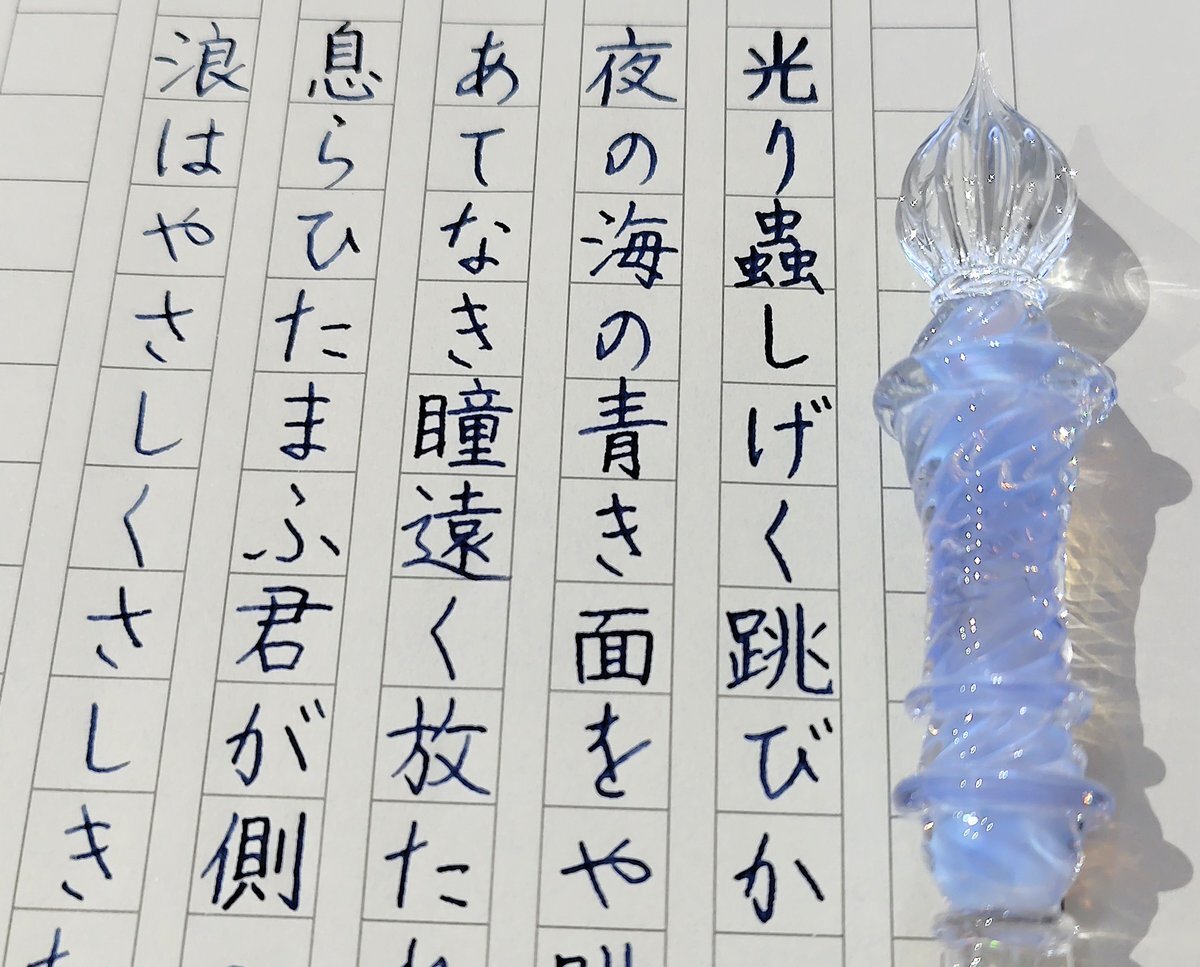 光り蟲しげく跳びか
夜の海の青き面をや
あてなき瞳遠く放た
息らひたまふ君が側
浪はやさしくさしき